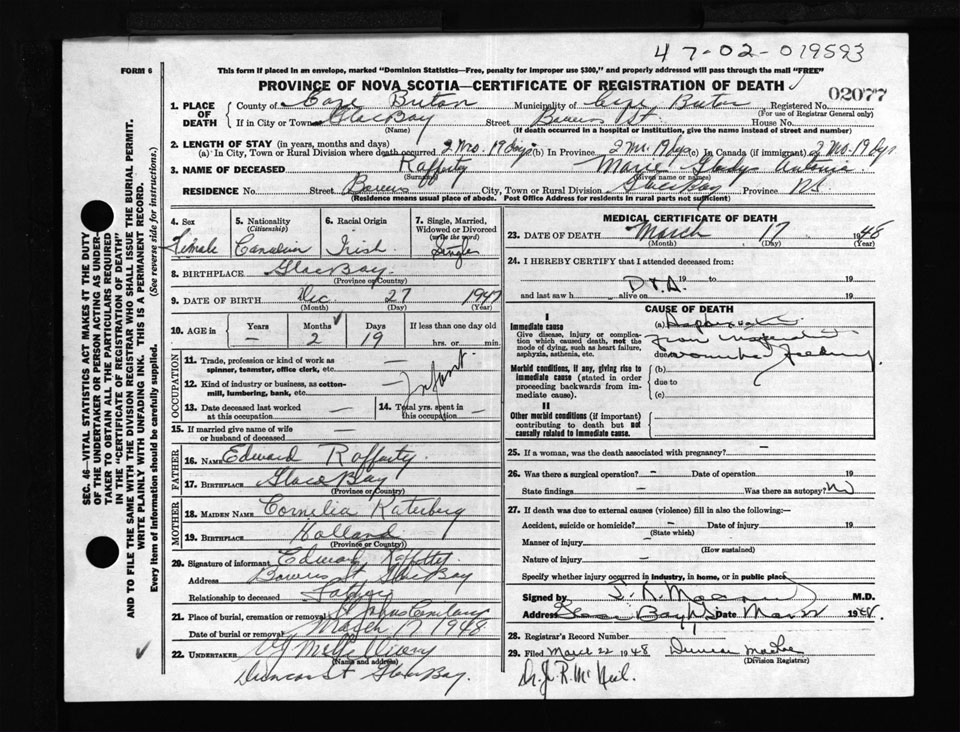 47-02-019593
FORM 6
This form if placed in an envelope, marked "Dominion Statistics—Free, penalty for improper use $300," and properly addressed will pass through the mail "FREE"
PROVINCE OF NOVA SCOTIA—CERTIFICATE OF REGISTRATION OF DEATH
02077
1. PLACE OF DEATH
County of Cape Breton Municipality of Cape Breton Registered No.
(For use of Registrar General only)
If in City or Town Glace Bay Street St. House No.
(Name) (If death occurred in a hospital or institution, give the name instead of street and number)
2. LENGTH OF STAY (in years, months and days)
(a) In City, Town or Rural Division where death occurred 2 Mo. 19 days (b) In Province 2 M. 19 dys (c) In Canada (if immigrant) 2 Mo. 19 dys
3. NAME OF DECEASED Rafferty Marie Gladys
(Surname) (Given name or names)
RESIDENCE No. Street City, Town or Rural Division Glace Bay Province NS
(Residence means usual place of abode. Post Office Address for residents in rural parts not sufficient)
4. Sex
Female
5. Nationality
(Citizenship)
Canadian
6. Racial Origin
Irish
7. Single, Married, Widowed or Divorced
(write the word)
Single
8. BIRTHPLACE Glace Bay
(Province or Country)
9. DATE OF BIRTH Dec. 27 1947
(Month) (Day) (Year)
10. AGE in Years Months Days If less than one day old
— 2 19 hrs. or min.
OCCUPATION
11. Trade, profession or kind of work as spinner, teamster, office clerk, etc.
12. Kind of industry or business, as cotton-mill, lumbering, bank, etc.
Infant
13. Date deceased last worked at this occupation —
14. Total yrs. spent in this occupation —
15. If married give name of wife or husband of deceased —
FATHER
16. NAME Edward Rafferty
17. BIRTHPLACE Glace Bay
(Province or Country)
MOTHER
18. MAIDEN NAME Cornelia Raterberg
19. BIRTHPLACE Holland
(Province or Country)
20. Signature of informant Edward Rafferty
Address St Glace Bay
Relationship to deceased Father
21. Place of burial, cremation or removal St Johns Cemetary
Date of burial or removal March 17 1948
22. UNDERTAKER McGillivary
(Name and address)
Duncan St Glace Bay.
MEDICAL CERTIFICATE OF DEATH
23. DATE OF DEATH March 17 1948
(Month) (Day) (Year)
24. I HEREBY CERTIFY that I attended deceased from:
D.O.A. 19 to 19
and last saw h alive on 19
CAUSE OF DEATH
I
Immediate cause
Give disease, injury or complication which caused death, not the mode of dying, such as heart failure, asphyxia, asthenia, etc.
(a)
from
due feeding
Morbid conditions, if any, giving rise to immediate cause (stated in order proceeding backwards from immediate cause).
(b)
due to
(c)
II
Other morbid conditions (if important) contributing to death but not causally related to immediate cause.
25. If a woman, was the death associated with pregnancy? —
26. Was there a surgical operation? — Date of operation 19
State findings — Was there an autopsy? No
27. If death was due to external causes (violence) fill in also the following:—
Accident, suicide or homicide? — Date of injury 19
(State which)
Manner of injury —
(How sustained)
Nature of injury —
Specify whether injury occurred in industry, in home, or in public place
Signed by M.D.
Address Glace Bay NS Date 19
28. Registrar's Record Number
29. Filed March 22 1948 Duncan
(Division Registrar)
Dr. J. R. McNeil.
SEC. 46—VITAL STATISTICS ACT MAKES IT THE DUTY
OF THE UNDERTAKER OR PERSON ACTING AS UNDER-
TAKER TO OBTAIN ALL THE PARTICULARS REQUIRED
IN THE "CERTIFICATE OF REGISTRATION OF DEATH"
AND TO FILE THE SAME WITH THE DIVISION REGISTRAR WHO SHALL ISSUE THE BURIAL PERMIT.
WRITE PLAINLY WITH UNFADING INK. THIS IS A PERMANENT RECORD.
Every item of Information should be carefully supplied. (See reverse side for instructions.)